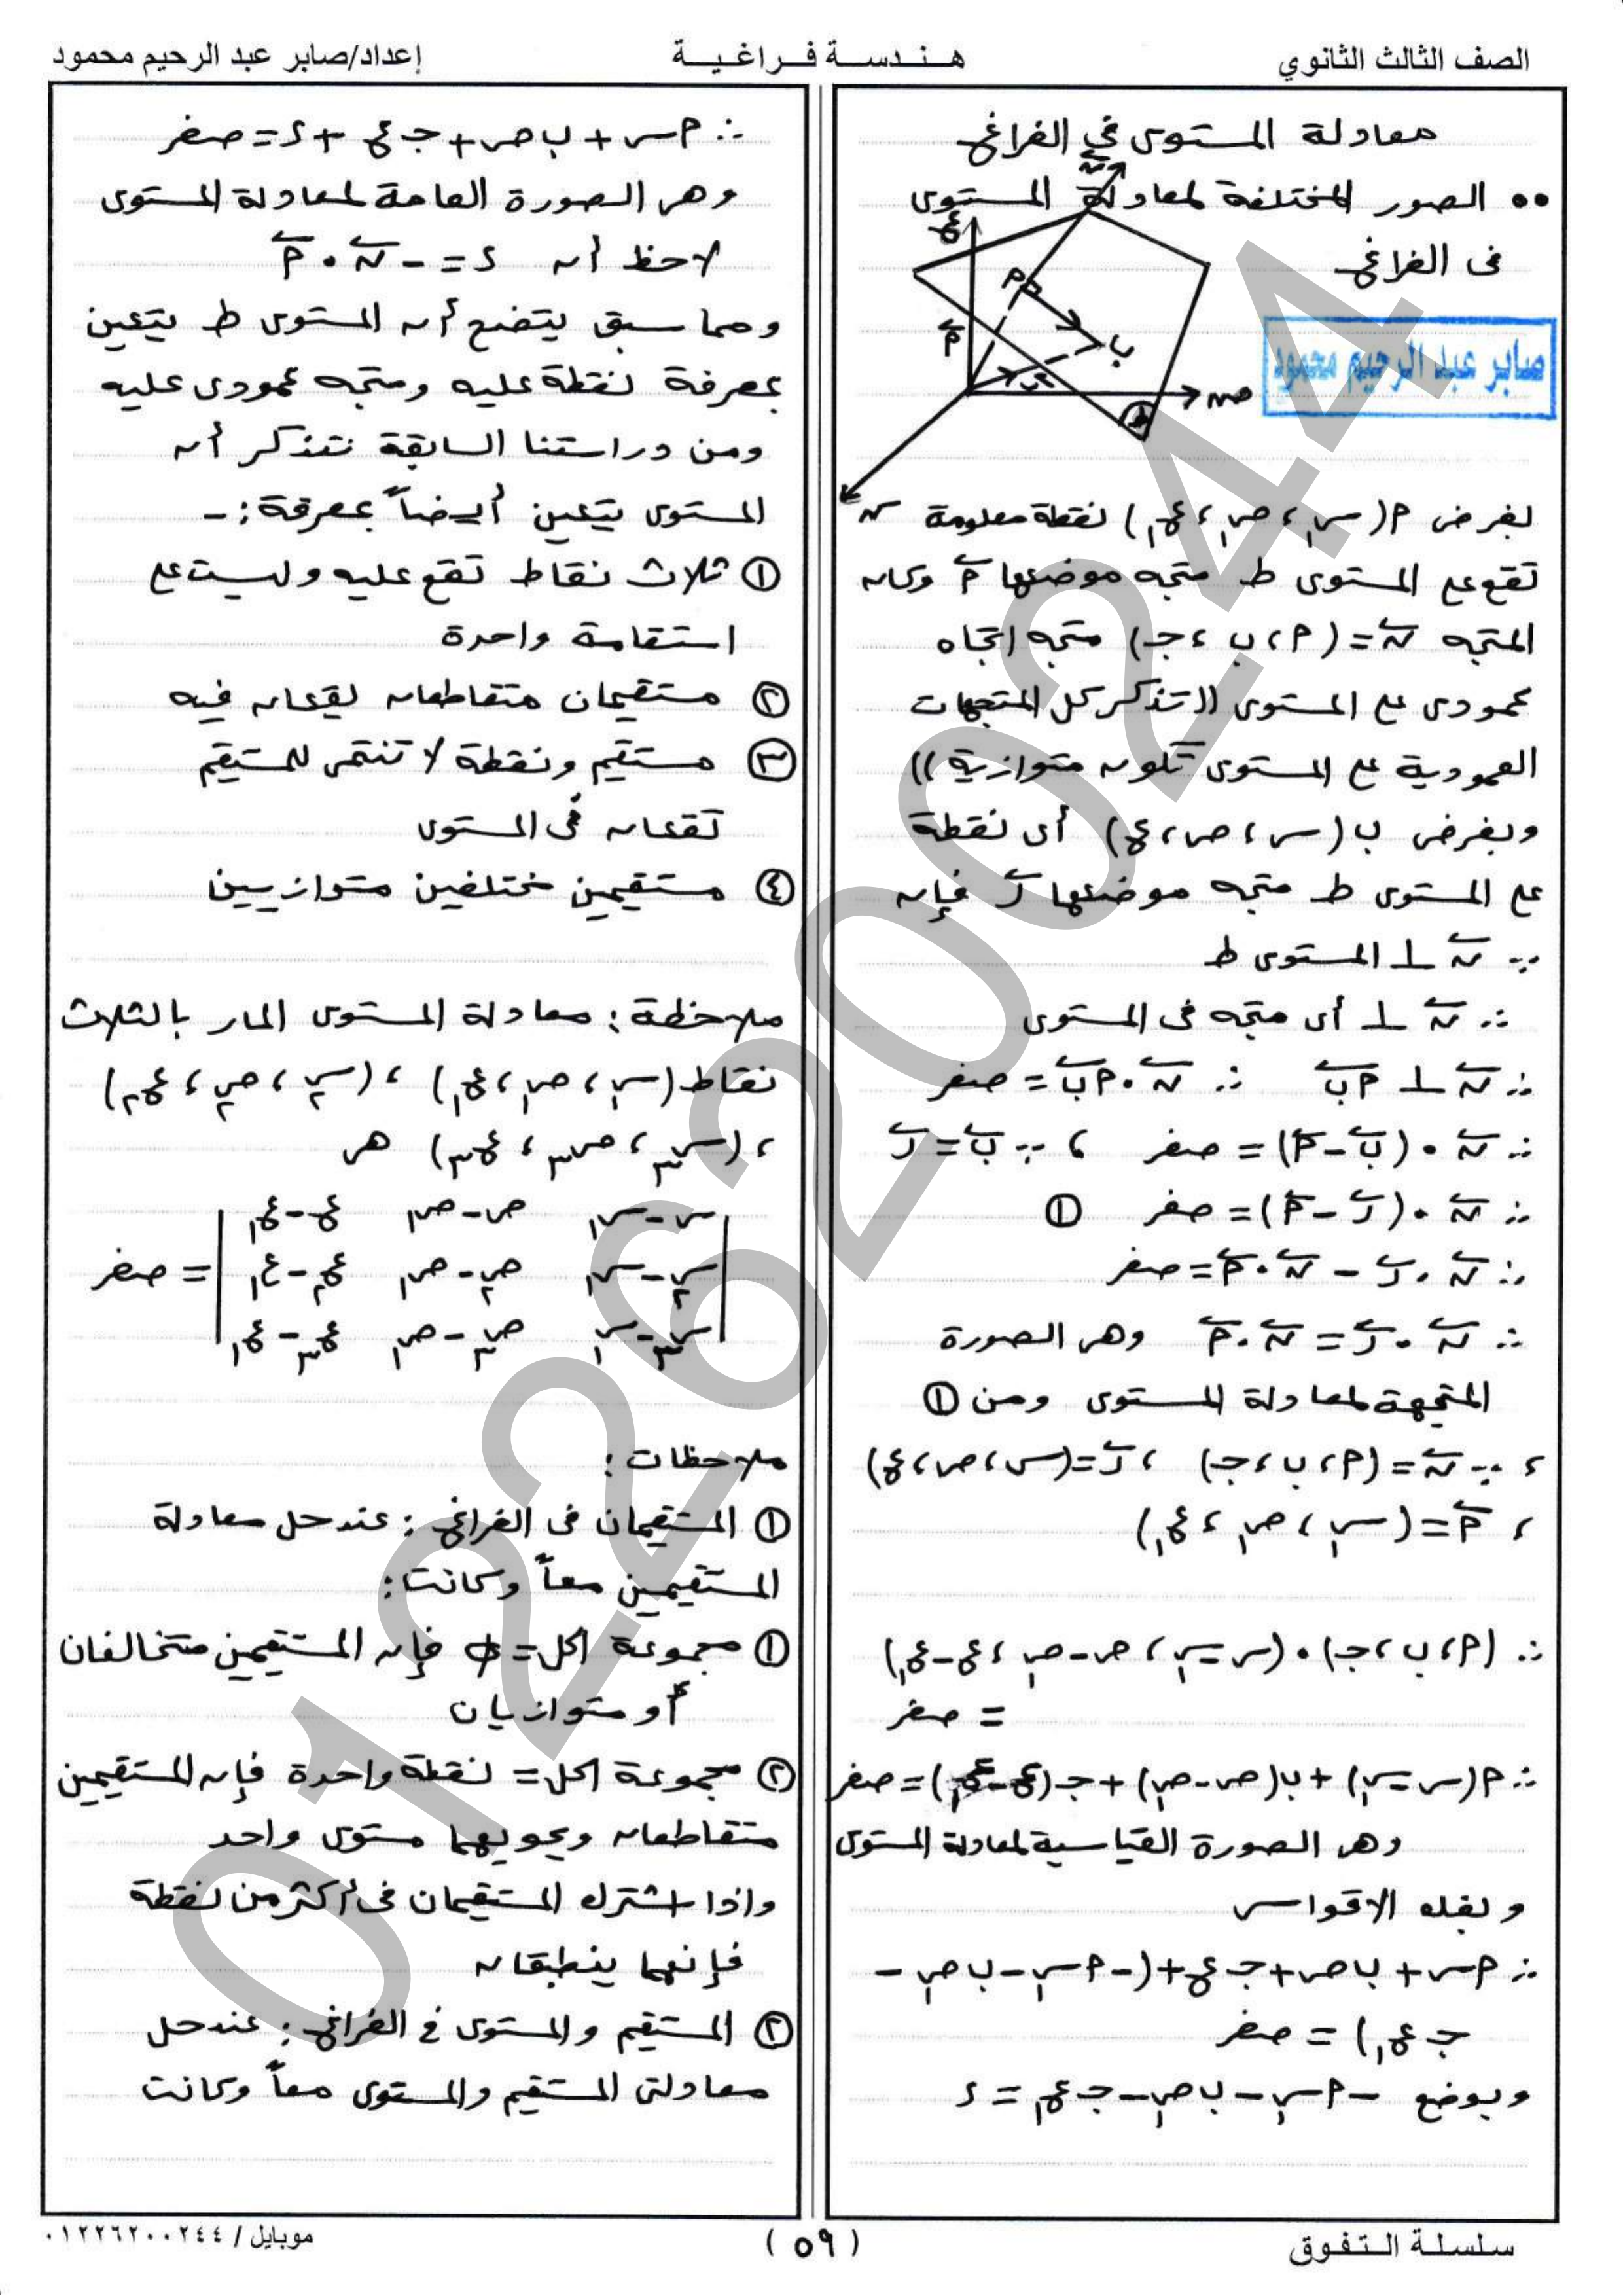 الصف الثالث الثانوي
هندسة فراغية
إعداد/صابر عبد الرحيم محمود
معادلة المستوى في الفراغ
٥٥ الصور المختلفة لمعادلة المستوى
فى الفراغ
صابر عبد الرحيم محمود
ع
ن
P
P
ب
ر
ص
ط
س
بفرض P(س١ ، ص١ ، ع١) نقطة معلومة
تقع على المستوى ط متجه موضعها P وكان
المتجه ن = (P ، ب ، جـ) متجه اتجاه
عمودى على المستوى ((تذكر كل المتجهات
العمودية على المستوى تكون متوازية))
وبفرض ب (س ، ص ، ع) أى نقطة
على المستوى ط متجه موضعها ر فإن
∵ ن ⊥ المستوى ط
∴ ن ⊥ أى متجه فى المستوى
∴ ن ⊥ Pب ∴ ن • Pب = صفر
∴ ن • (ب - P) = صفر ، ∵ ب = ر
∴ ن • (ر - P) = صفر ①
∴ ن • ر - ن • P = صفر
∴ ن • ر = ن • P وهى الصورة
المتجهة لمعادلة المستوى ومن ①
، ∵ ن = (P ، ب ، جـ) ، ر = (س ، ص ، ع)
، P = (س١ ، ص١ ، ع١)
∴ (P ، ب ، جـ) • (س - س١ ، ص - ص١ ، ع - ع١)
= صفر
∴ P(س - س١) + ب(ص - ص١) + جـ(ع - ع١) = صفر
وهى الصورة القياسية لمعادلة المستوى
وبفك الاقواس
∴ Pس + ب ص + جـ ع + (-P س١ - ب ص١ -
جـ ع١) = صفر
وبوضع -P س١ - ب ص١ - جـ ع١ = د
∴ Pس + ب ص + جـ ع + د = صفر
وهى الصورة العامة لمعادلة المستوى
لاحظ أن د = - ن • P
ومما سبق يتضح أن المستوى ط يتعين
بمعرفة نقطة عليه ومتجه عمودى عليه
ومن دراستنا السابقة نتذكر أن
المستوى يتعين أيضاً بمعرفة :-
① ثلاث نقاط تقع عليه وليست على
استقامة واحدة
② مستقيمان متقاطعان يقعان فيه
③ مستقيم ونقطة لا تنتمى للمستقيم
تقعان فى المستوى
④ مستقيمين مختلفين متوازيين
ملاحظة : معادلة المستوى المار بالثلاث
نقاط (س١ ، ص١ ، ع١) ، (س٢ ، ص٢ ، ع٢)
، (س٣ ، ص٣ ، ع٣) هى
| س - س١ ص - ص١ ع - ع١
س٢ - س١ ص٢ - ص١ ع٢ - ع١ | = صفر
س٣ - س١ ص٣ - ص١ ع٣ - ع١
ملاحظات :
① المستقيمان فى الفراغ : عند حل معادلة
المستقيمين معاً وكانت :
① مجموعة الحل = φ فإن المستقيمين متخالفان
أو متوازيان
② مجموعة الحل = نقطة واحدة فإن المستقيمين
متقاطعان ويحويهما مستوى واحد
واذا اشترك المستقيمان فى أكثر من نقطة
فإنهما ينطبقان
② المستقيم والمستوى فى الفراغ : عند حل
معادلتى المستقيم والمستوى معاً وكانت
سلسلة التفوق
(٥٩)
موبايل / ٠١٢٢٦٢٠٠٢٤٤
01226200244